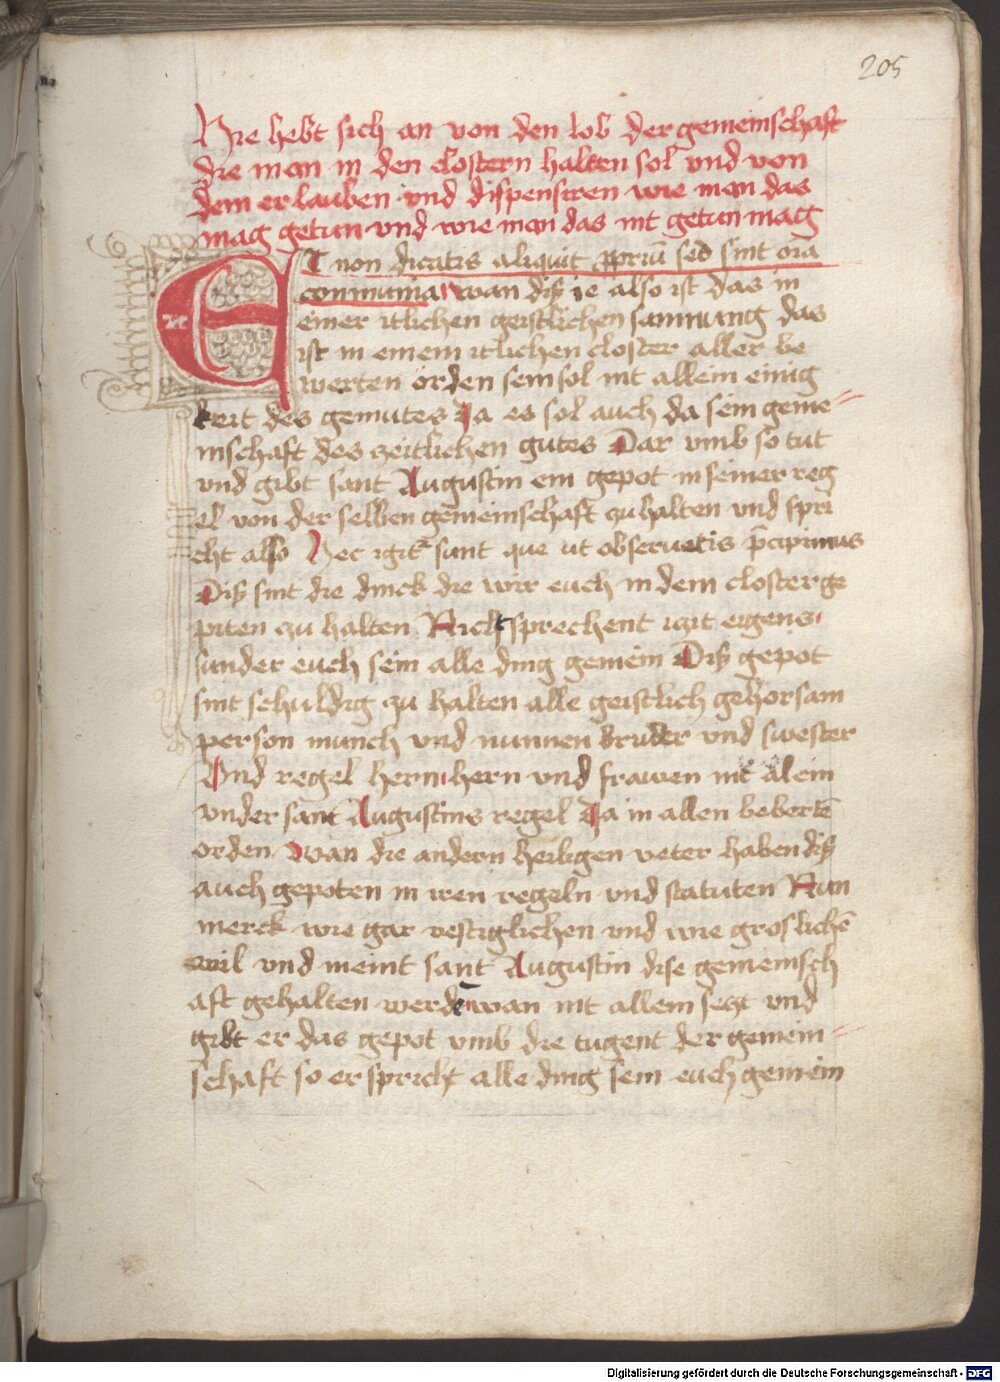 205
Hie hebt sich an von den lob der gemeinschaft
die man in den clostern halten sol vnd von
dem erlauben vnd dispensiren wie man das
mag getun vnd wie man das nit getun mag
Et non dicatis aliquit ꝓpriū sed sint oīa
communia wan diß ie also ist das in
einer itlichen geistlichen samnung das
ist in einem itlichen closter aller be
werten orden sein sol nit allein einig
keit des gemutes Ja es sol auch da sein geme-
inschaft des zeitlichen gutes Dar vmb so tut
vnd gibt sant Augustin ein gepot in seiner reg
el von der selben gemeinschaft zu halten vnd spri
cht also Hec igit̄ sunt que ut obseruetis p̄cipimus
Diß sint die dinck die wir euch in dem closter ge
piten zu halten sprechent icit eigens
sunder euch sein alle ding gemein Diß gepot
sint schuldig zu halten alle geistlich gehorsam
person munch vnd nunnen bruder vnd swester
Vnd regel hern hern vnd frawen nit alein
vnder sant Augustins regel Ja in allen bebertē
orden wan die andern heiligen veter haben diß
auch gepoten in iren regeln vnd statuten Nun
merck wie gar vestiglichen vnd wie groslichē
wil vnd meint sant Augustin dise gemeinsch
aft gehalten werdē wan nit allein setzt vnd
gibt er das gepot vmb die tugent der gemein-
schaft so er spricht alle ding sein euch gemein
Digitalisierung gefördert durch die Deutsche Forschungsgemeinschaft - DFG